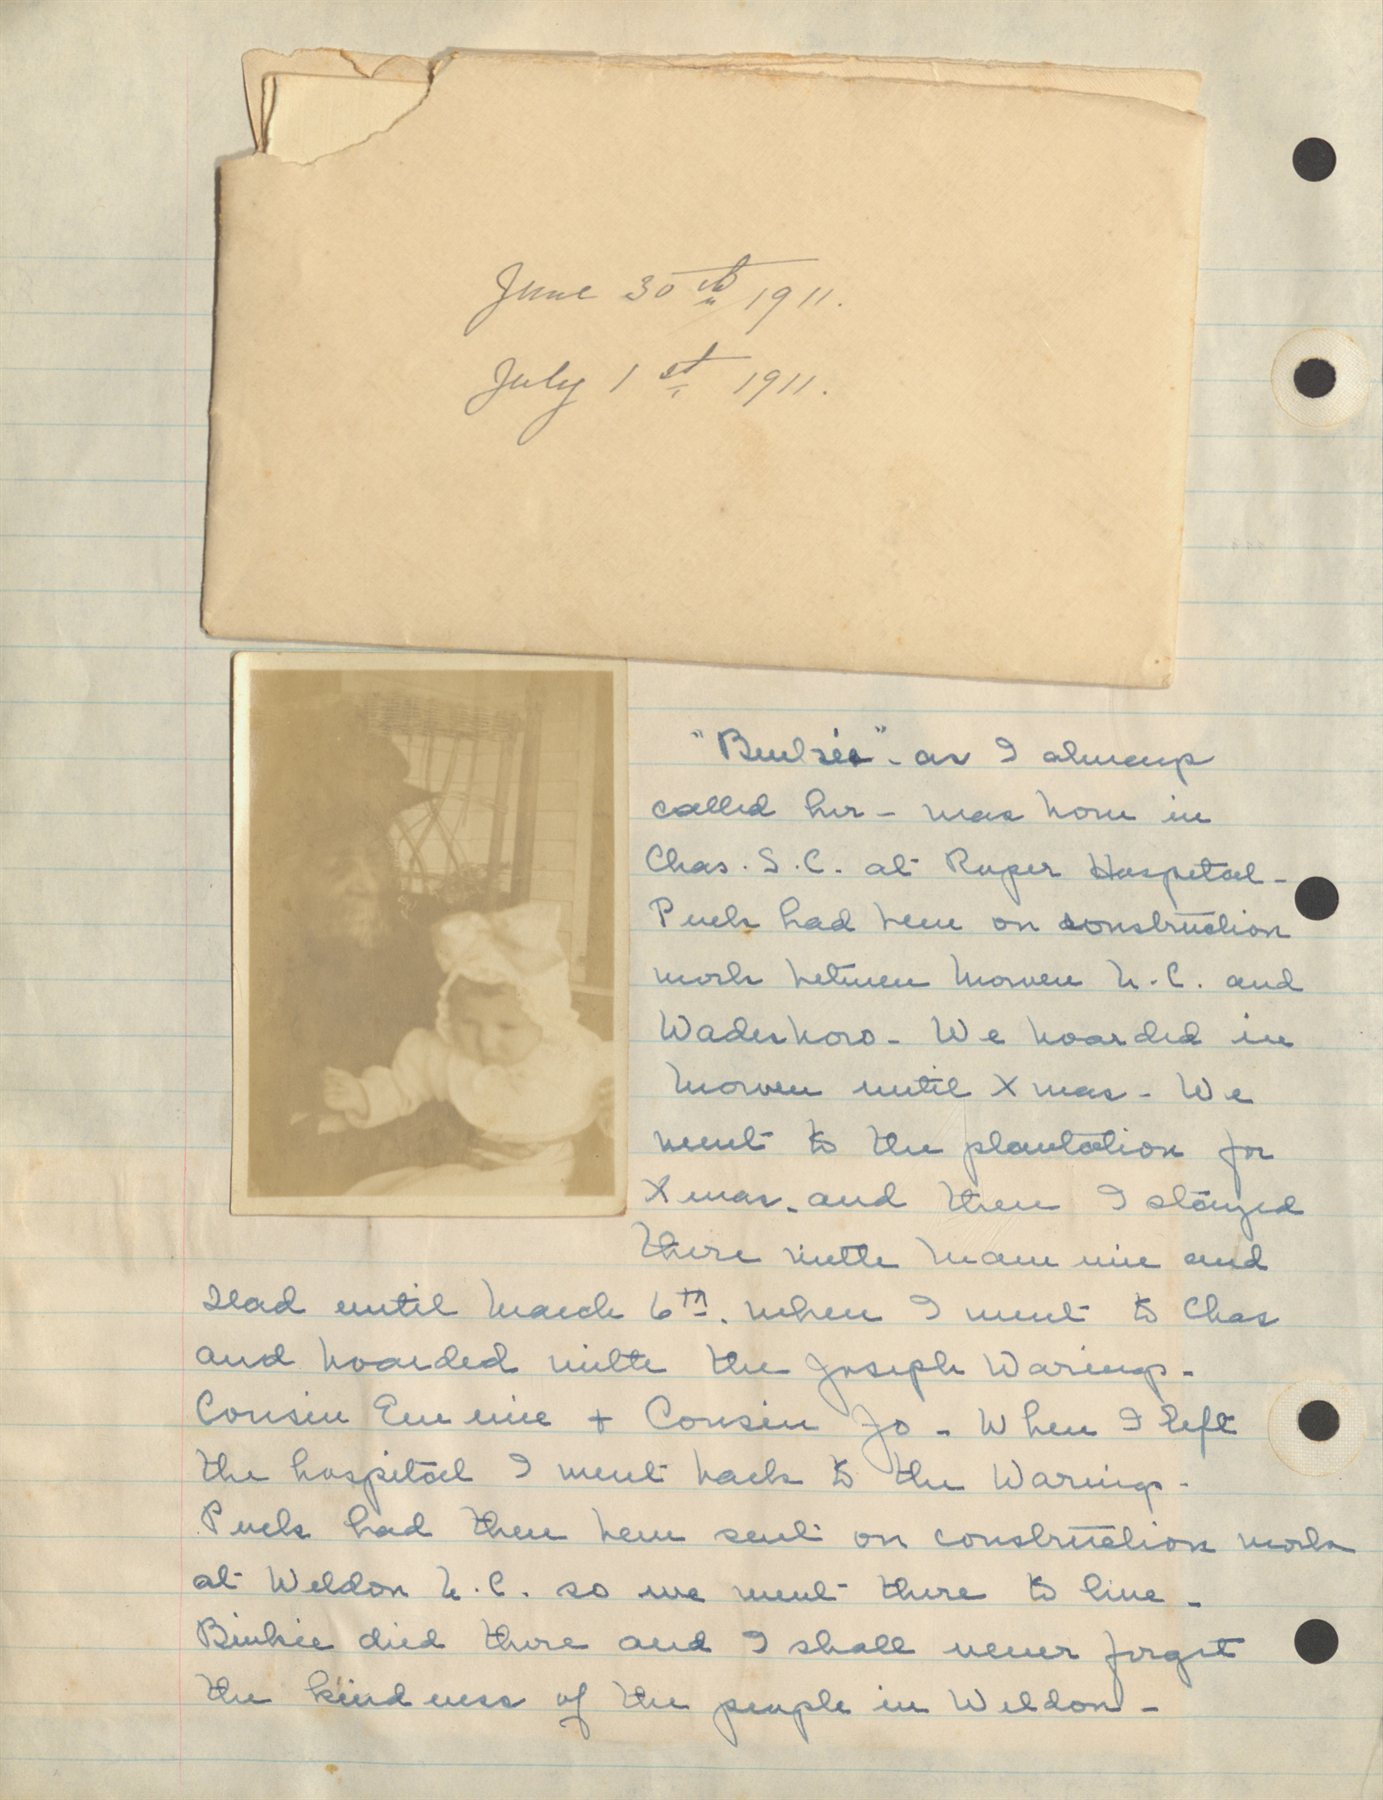 June 30th 1911.
July 1st 1911.
"Binkie" - as I always
called her - was born in
Chas. S.C. at Roper Hospital -
Puck had been on construction
work between Morven N.C. and
Wadesboro - We boarded in
Morven until Xmas - We
went to the plantation for
Xmas. and then I stayed
there with Mammie and
until March 6th. when I went to Chas
and boarded with the Joseph Warings -
Cousin Emmie + Cousin Jo - When I left
the hospital I went back to the Warings -
Puck had then been sent on construction work
at Weldon N.C. so we went there to live -
Binkie died there and I shall never forget
the kindness of the people in Weldon -